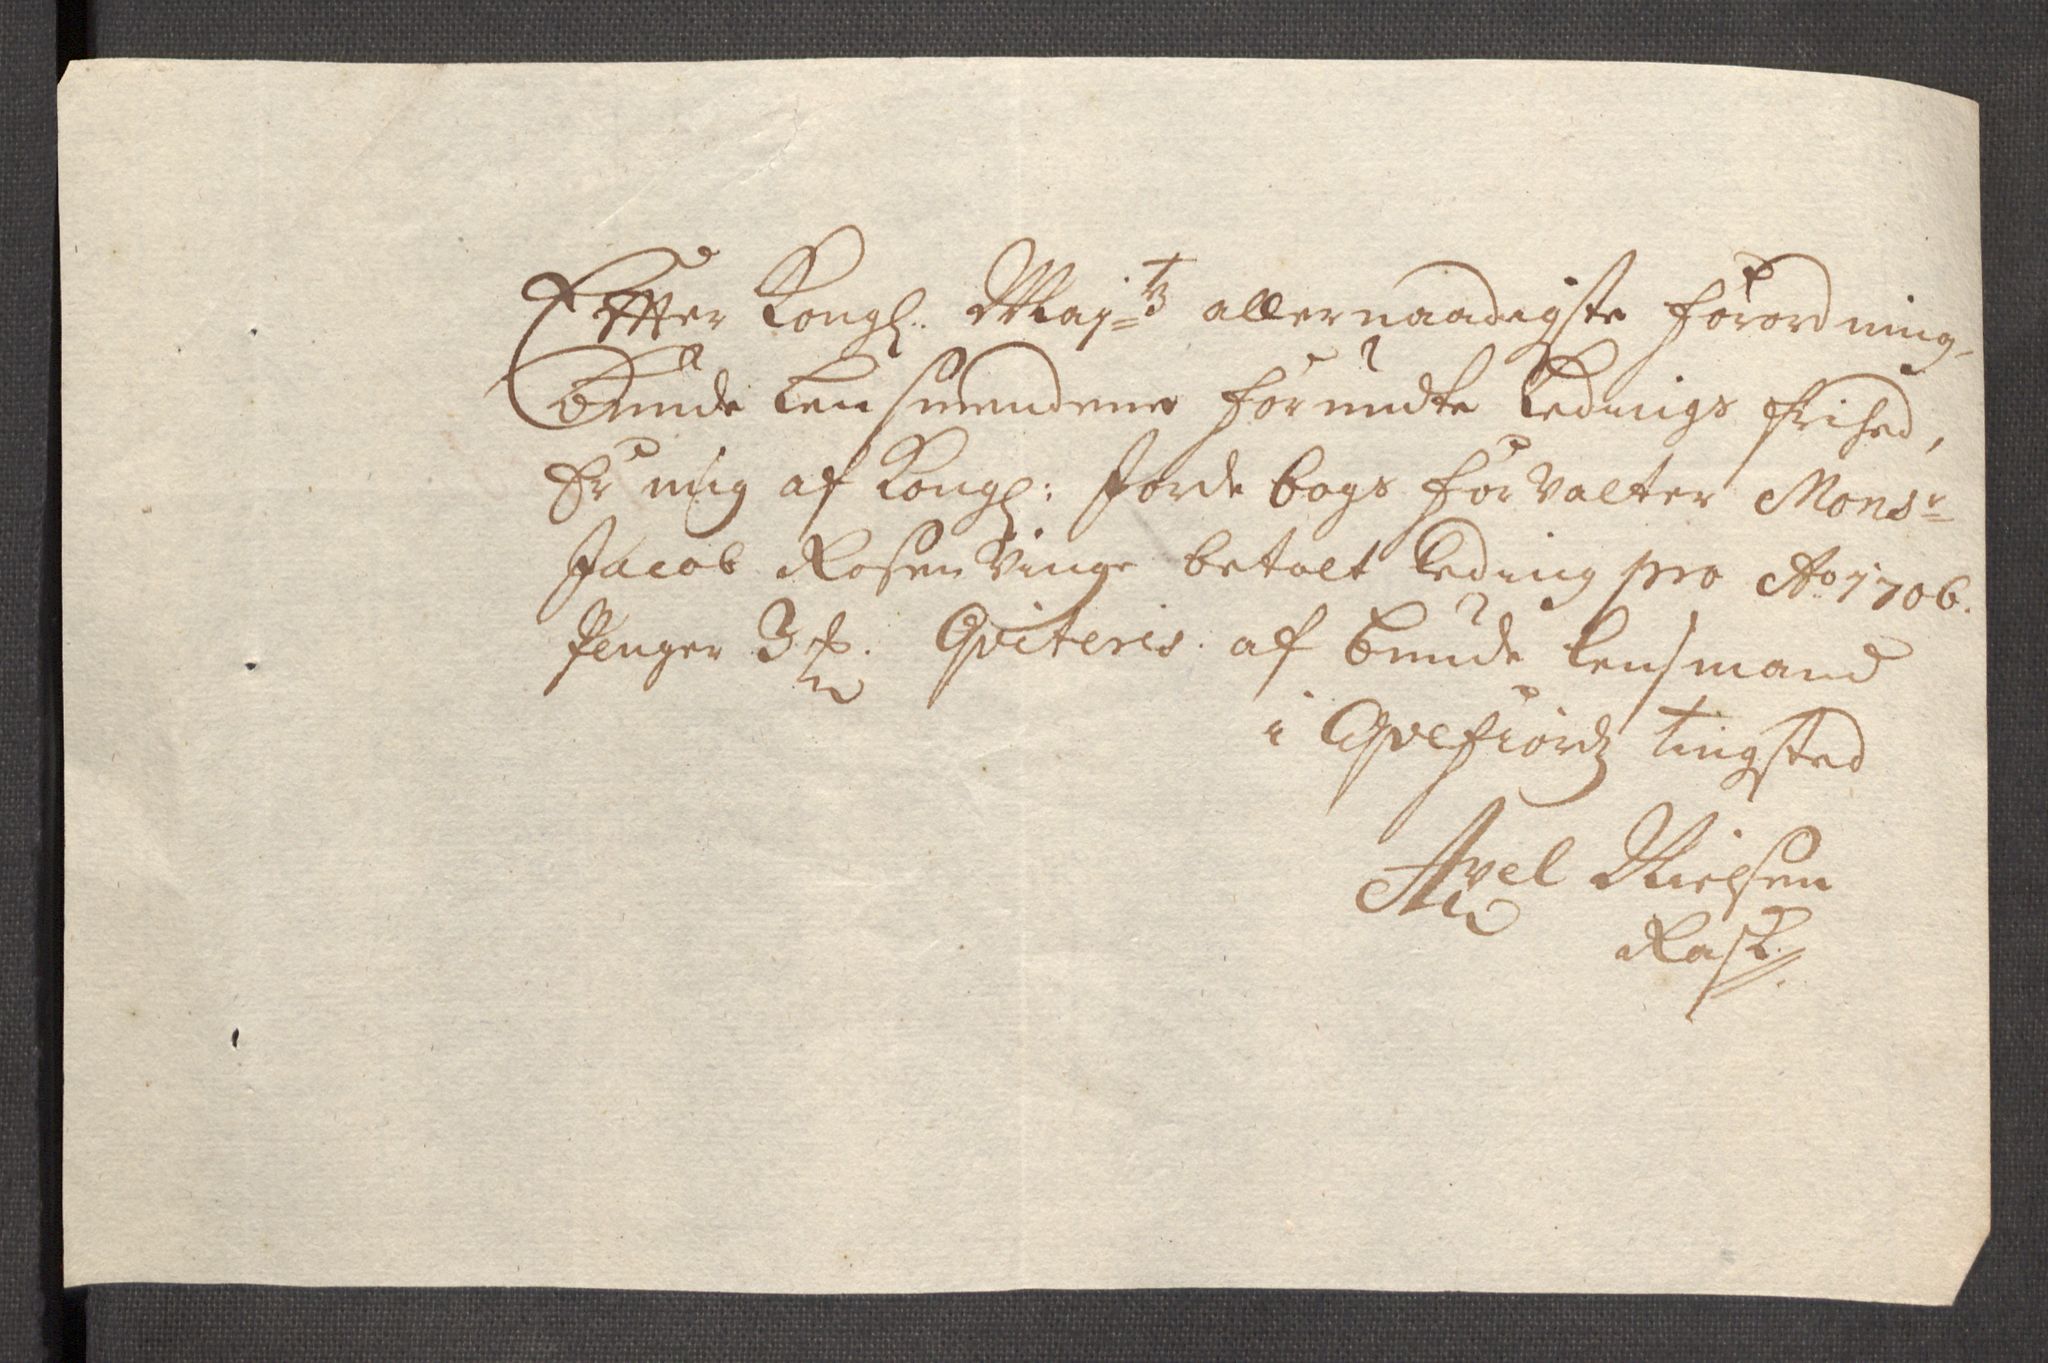 Effter Kongl: Maj:tz allernaadigste forordning,
Bunde Lensmendene forundte Ledings frihed,
Er mig af Kongl: Jorde bogs forvalter Monsr
Jacob Rosenvinge betalt Leding pro Ao 1706.
Penger 3 Qviteris af bunde lensmand
i Qvefiordz tingsted
Axel Nielsen
Rask